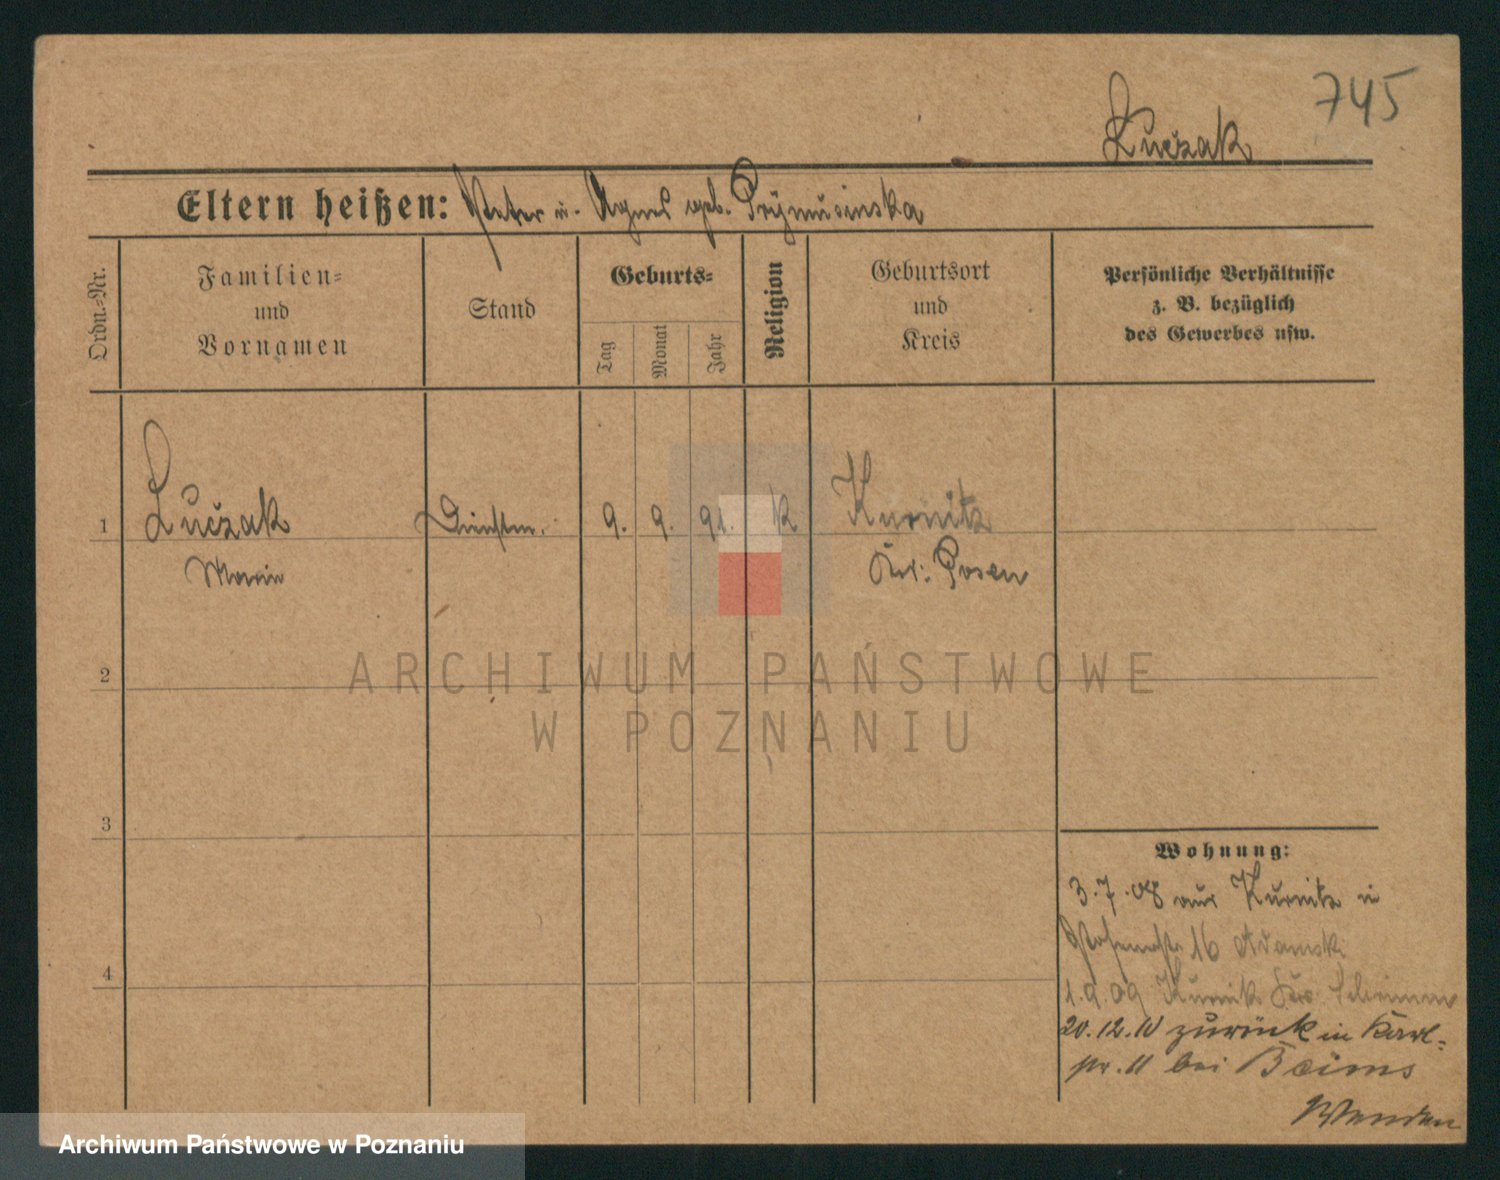 745
Luczak
Eltern heißen: Peter u. Agnes geb. Prymusinska
Ordn.-Nr.
Familien-
und
Vornamen
Stand
Geburts-
Tag
Monat
Jahr
Religion
Geburtsort
und
Kreis
Persönliche Verhältnisse
z. B. bezüglich
des Gewerbes usw.
1
Luczak
Marie
Dienstm.
9.
9.
91.
K
Kurnik
Kr. Posen
2
3
4
Wohnung:
3.7.08 aus Kurnik in
16 Adamski
1.9.09 Kurnik Krs. Schrimm
20.12.10 zurück in Karl-
str. 11 bei Beims
Wenden
ARCHIWUM PAŃSTWOWE
W POZNANIU
Archiwum Państwowe w Poznaniu